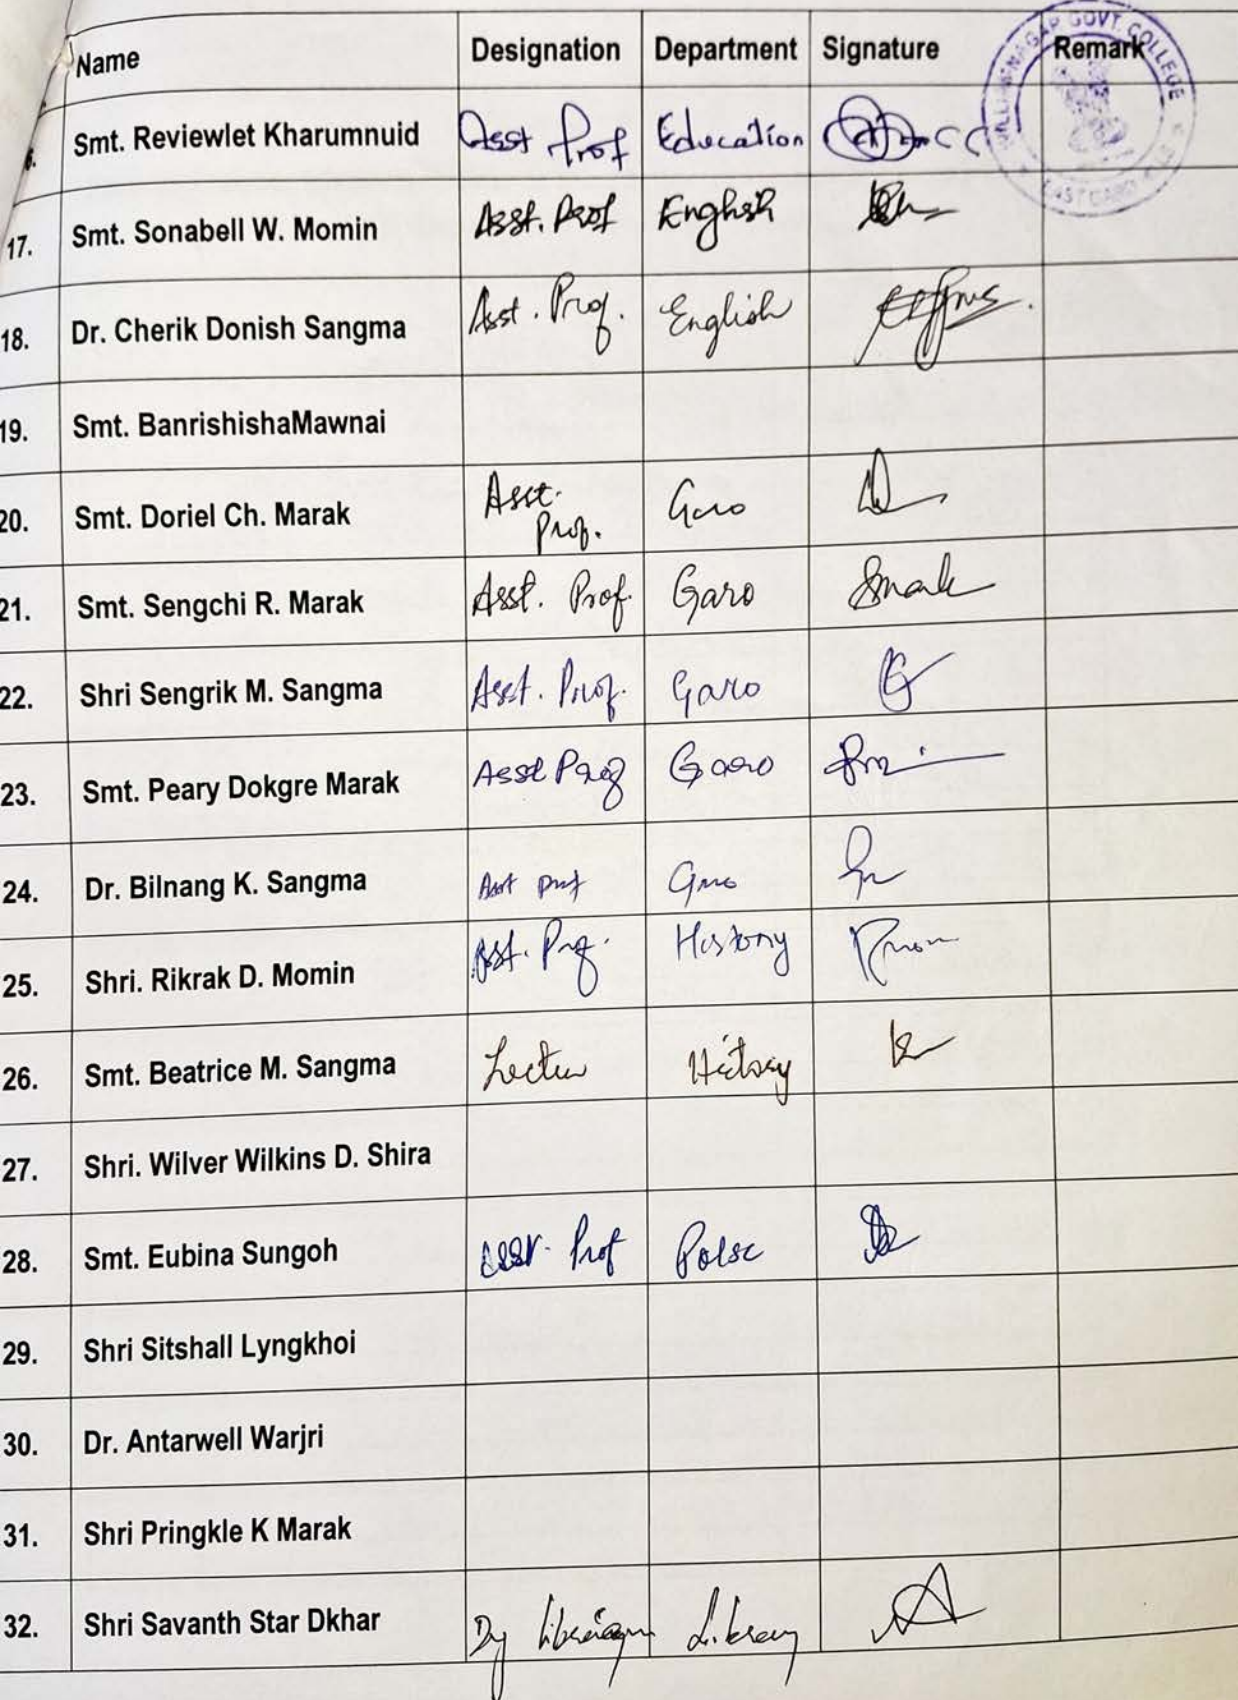 Name Designation Department Signature Remark
WILLIAMNAGAR GOVT. COLLEGE
EAST GARO
6. Smt. Reviewlet Kharumnuid Asst Prof Education
17. Smt. Sonabell W. Momin Asst. Prof English
18. Dr. Cherik Donish Sangma Asst. Prof. English
19. Smt. BanrishishaMawnai
20. Smt. Doriel Ch. Marak Asst. Prof. Garo
21. Smt. Sengchi R. Marak Asst. Prof. Garo Smarak
22. Shri Sengrik M. Sangma Asst. Prof. Garo
23. Smt. Peary Dokgre Marak Asst Prof Garo
24. Dr. Bilnang K. Sangma Asst prof Garo
25. Shri. Rikrak D. Momin Asst. Prof. History
26. Smt. Beatrice M. Sangma Lectur History
27. Shri. Wilver Wilkins D. Shira
28. Smt. Eubina Sungoh Asst. Prof Polsc
29. Shri Sitshall Lyngkhoi
30. Dr. Antarwell Warjri
31. Shri Pringkle K Marak
32. Shri Savanth Star Dkhar Dy librarian Library